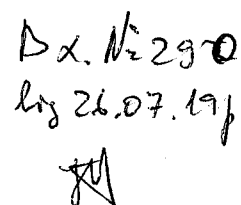 Вх. № 290
від 26.07.19р